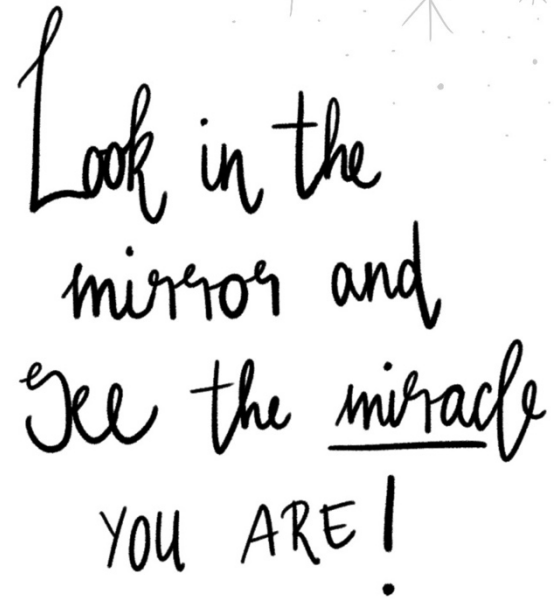 Look in the
mirror and
see the miracle
YOU ARE!